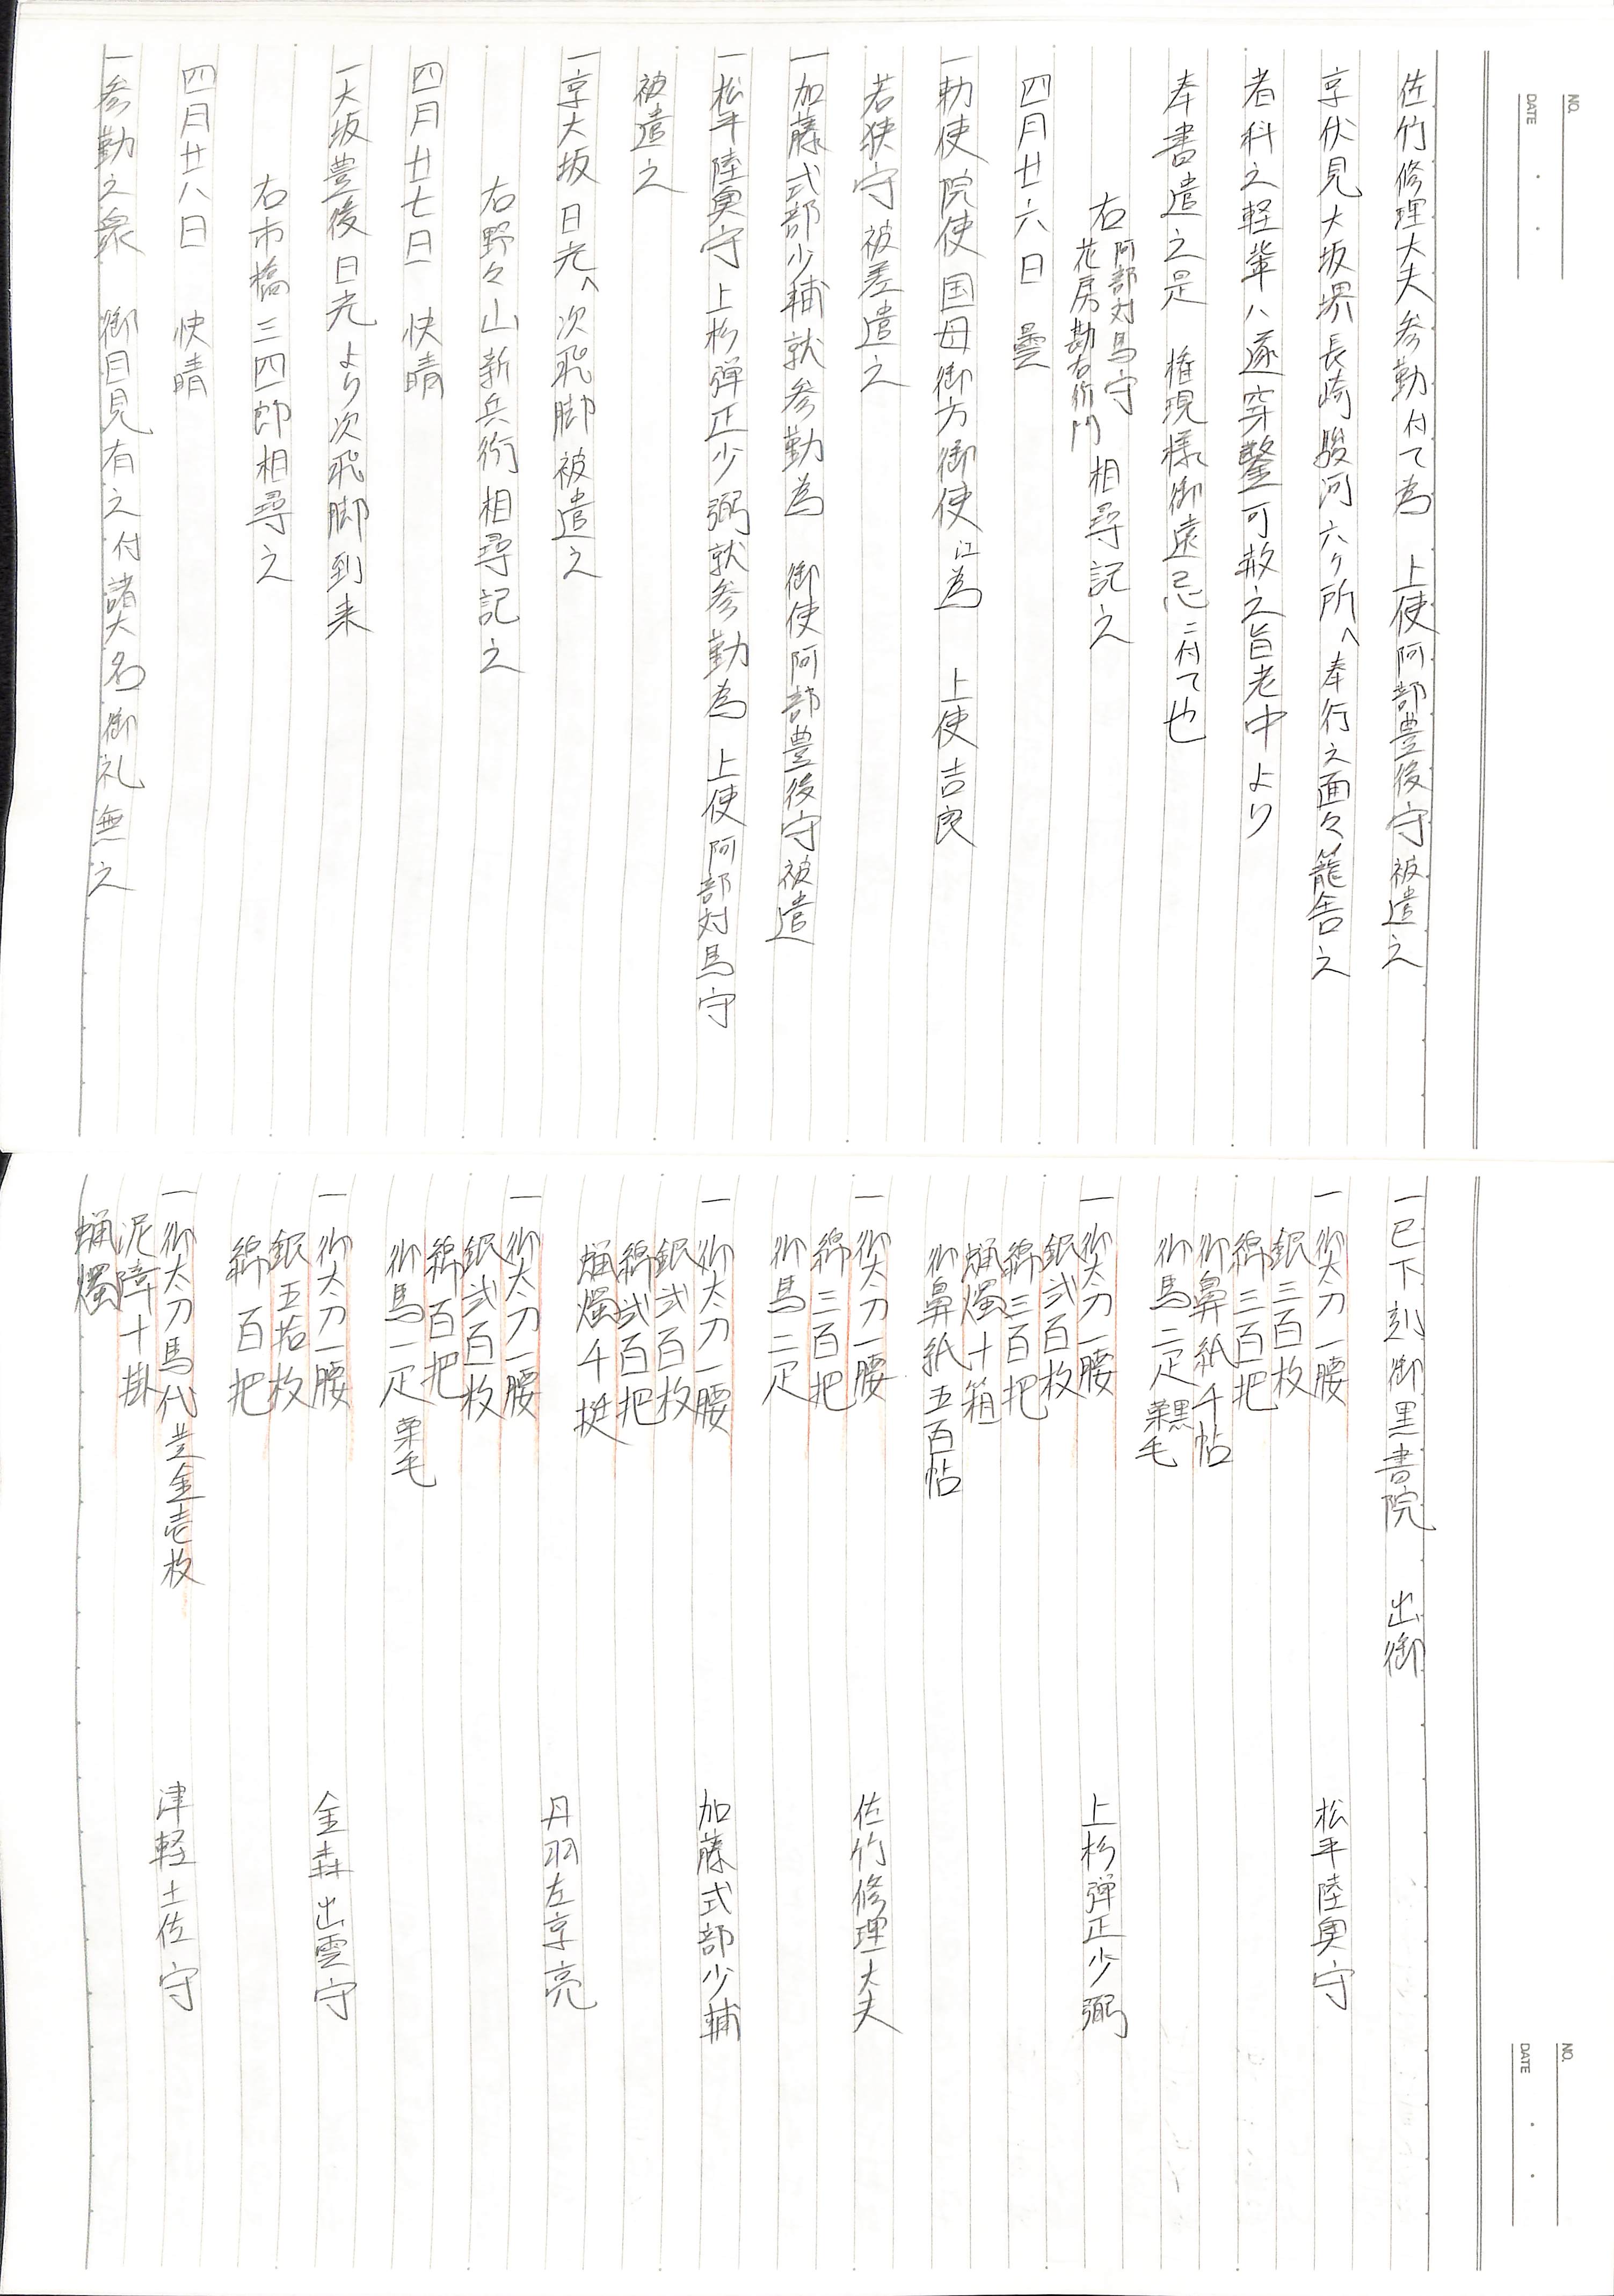 NO.
DATE
佐竹修理大夫参勤付て為　上使阿部豊後守被遣之
京伏見大坂堺長崎駿河六ケ所へ奉行之面々籠舎之
者科之軽輩ハ遂穿鑿可赦之旨老中より
奉書遣之是　権現様御遠忌ニ付て也
右阿部対馬守
花房勘右衛門　相尋記之
四月廿六日　曇
一勅使院使国母御方御使江為　上使吉良
若狭守被差遣之
一加藤式部少輔就参勤為　御使阿部豊後守被遣
一松平陸奥守上杉弾正少弼就参勤為　上使阿部対馬守
被遣之
一京大坂日光へ次飛脚被遣之
右野々山新兵衛相尋記之
四月廿七日　快晴
一大坂豊後日光より次飛脚到来
右市橋三四郎相尋之
四月廿八日　快晴
一参勤之衆　御目見有之付諸大名御礼無之
NO.
DATE
一巳下刻御黒書院　出御
一御太刀一腰　松平陸奥守
銀三百枚
綿三百把
御鼻紙千帖
御馬二疋黒栗毛
一御太刀一腰　上杉弾正少弼
銀弐百枚
綿三百把
蝋燭十箱
御鼻紙五百帖
一御太刀一腰　佐竹修理大夫
綿三百把
御馬二疋
一御太刀一腰　加藤式部少輔
銀弐百枚
綿弐百把
蝋燭千挺
一御太刀一腰　丹羽左京亮
銀弐百枚
綿百把
御馬一疋栗毛
一御太刀一腰　金森出雲守
銀五拾枚
綿百把
一御太刀馬代黄金壱枚　津軽土佐守
泥障十掛
蝋燭